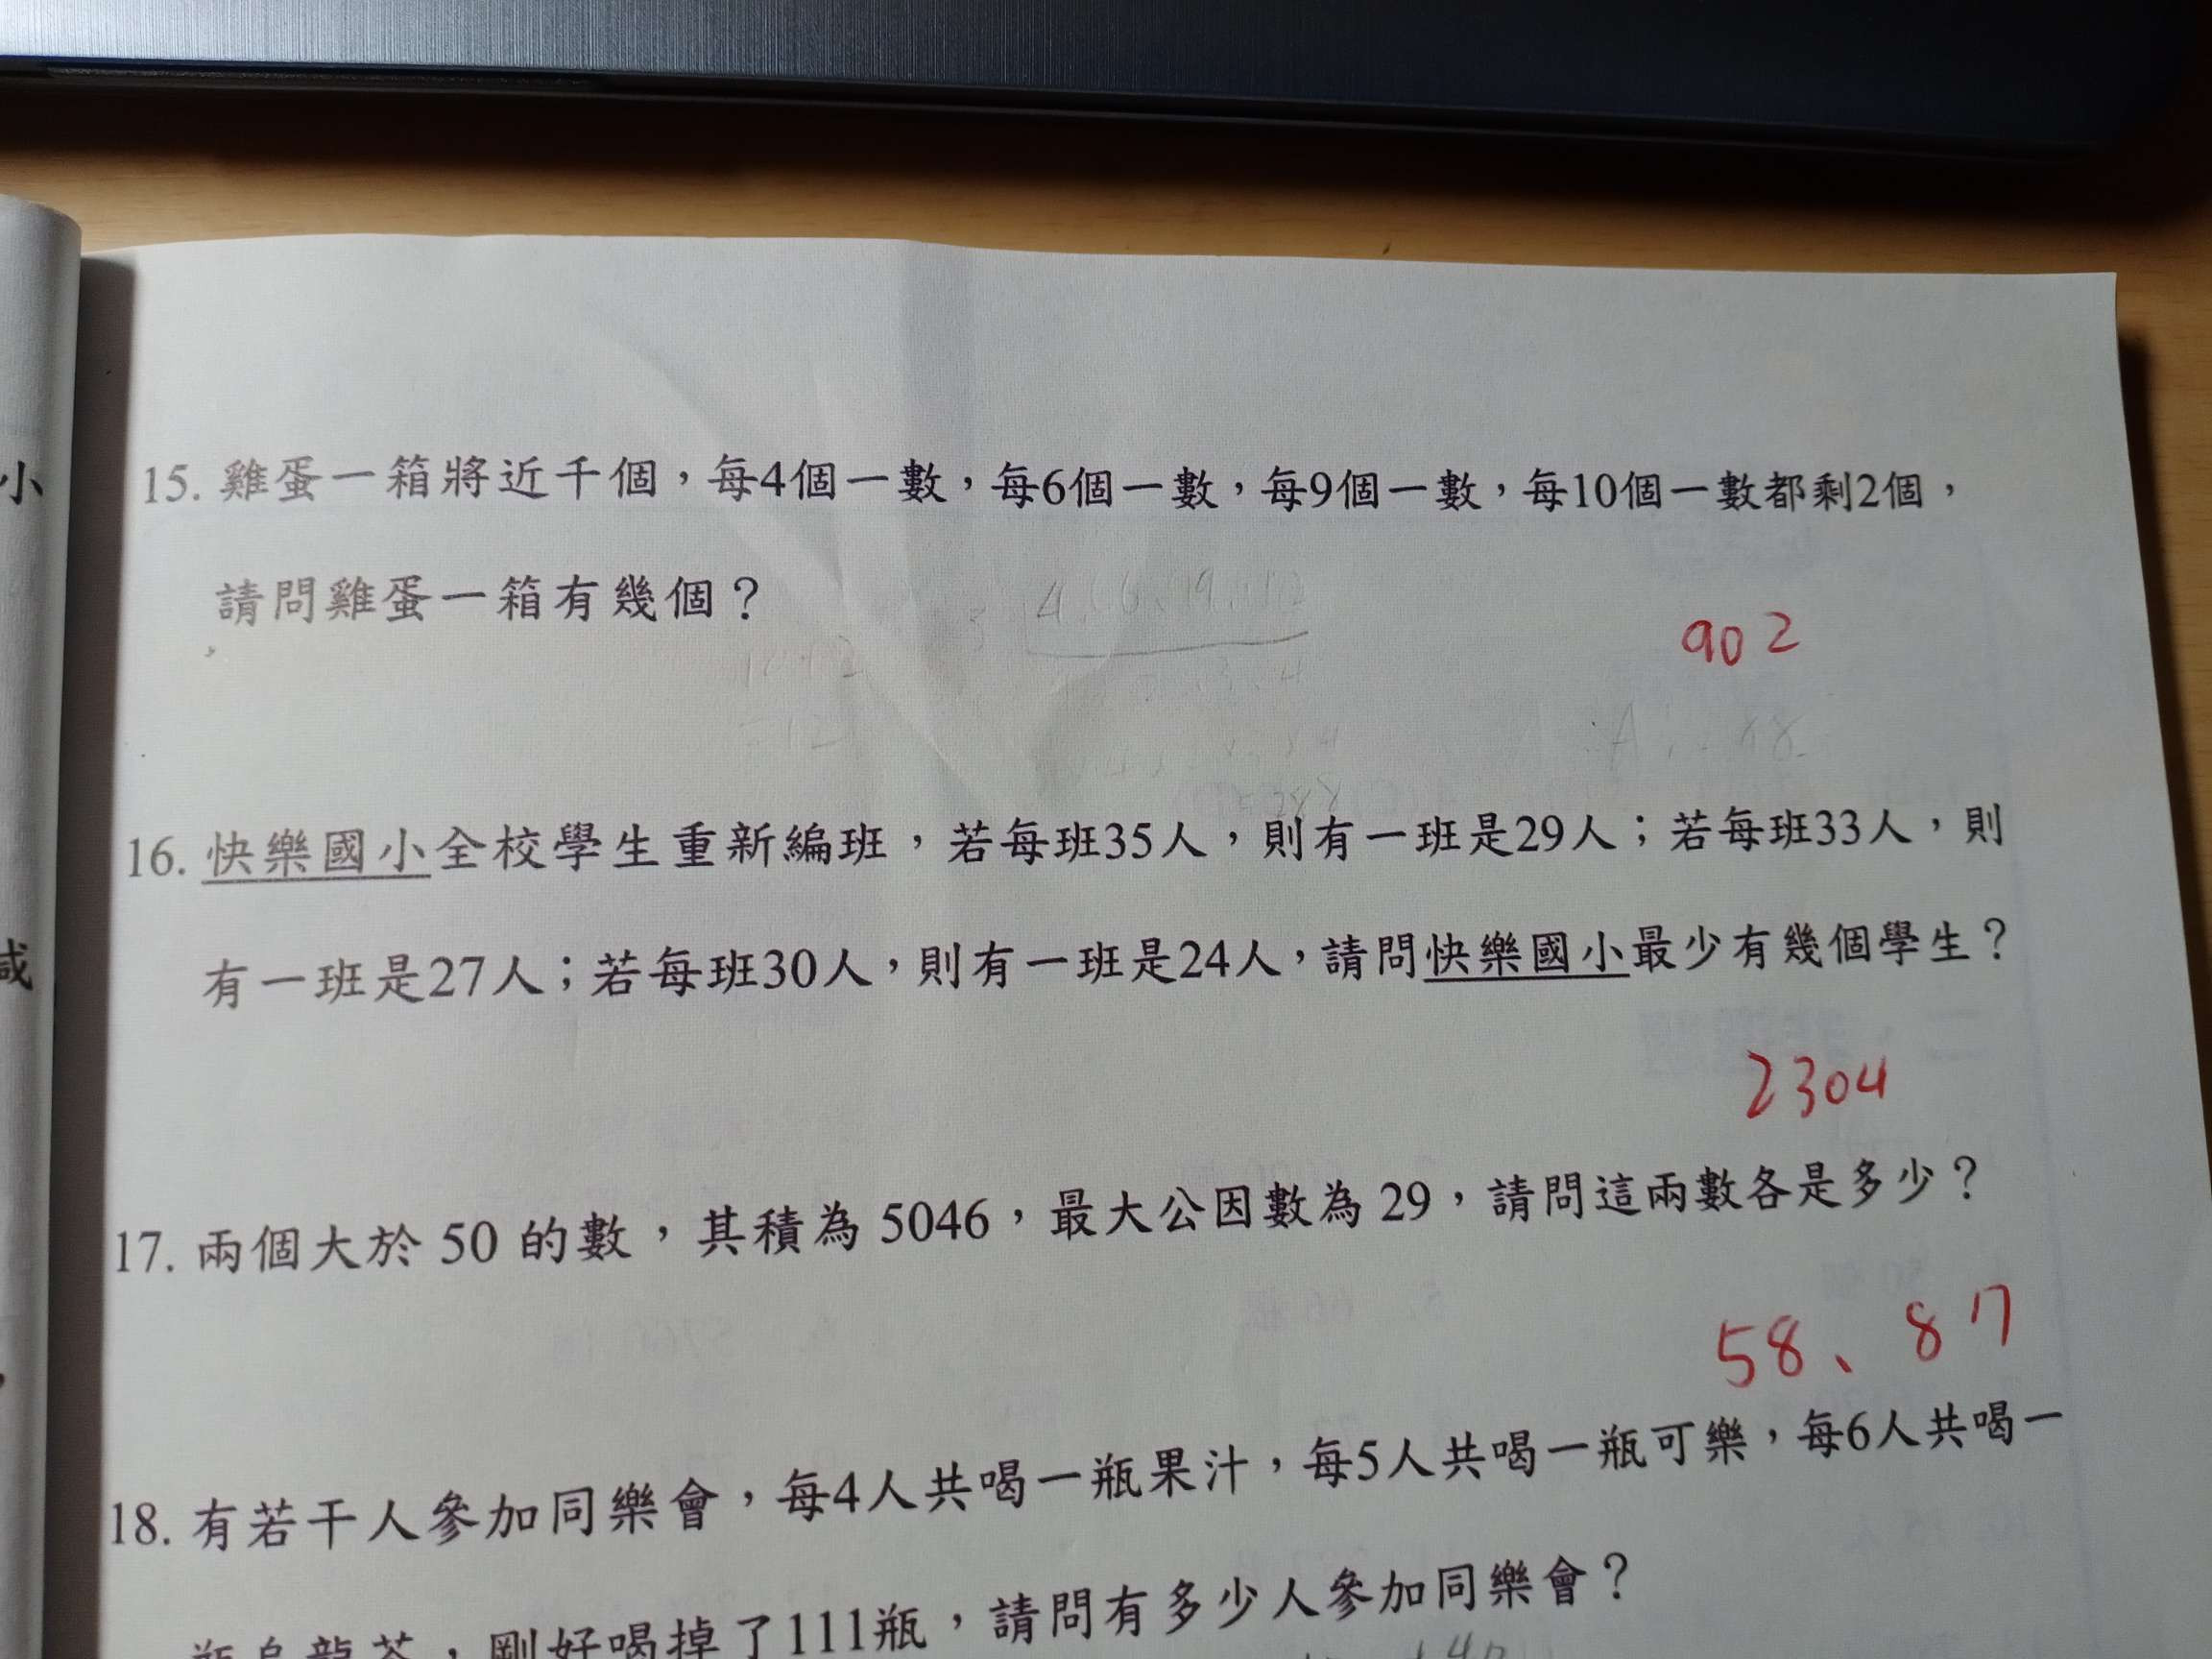 小
15. 雞蛋一箱將近千個，每4個一數，每6個一數，每9個一數，每10個一數都剩2個，
請問雞蛋一箱有幾個？
902
16. 快樂國小全校學生重新編班，若每班35人，則有一班是29人；若每班33人，則
有一班是27人；若每班30人，則有一班是24人，請問快樂國小最少有幾個學生？
2304
17. 兩個大於 50 的數，其積為 5046，最大公因數為 29，請問這兩數各是多少？
58、87
18. 有若干人參加同樂會，每4人共喝一瓶果汁，每5人共喝一瓶可樂，每6人共喝一
瓶烏龍茶，剛好喝掉了111瓶，請問有多少人參加同樂會？